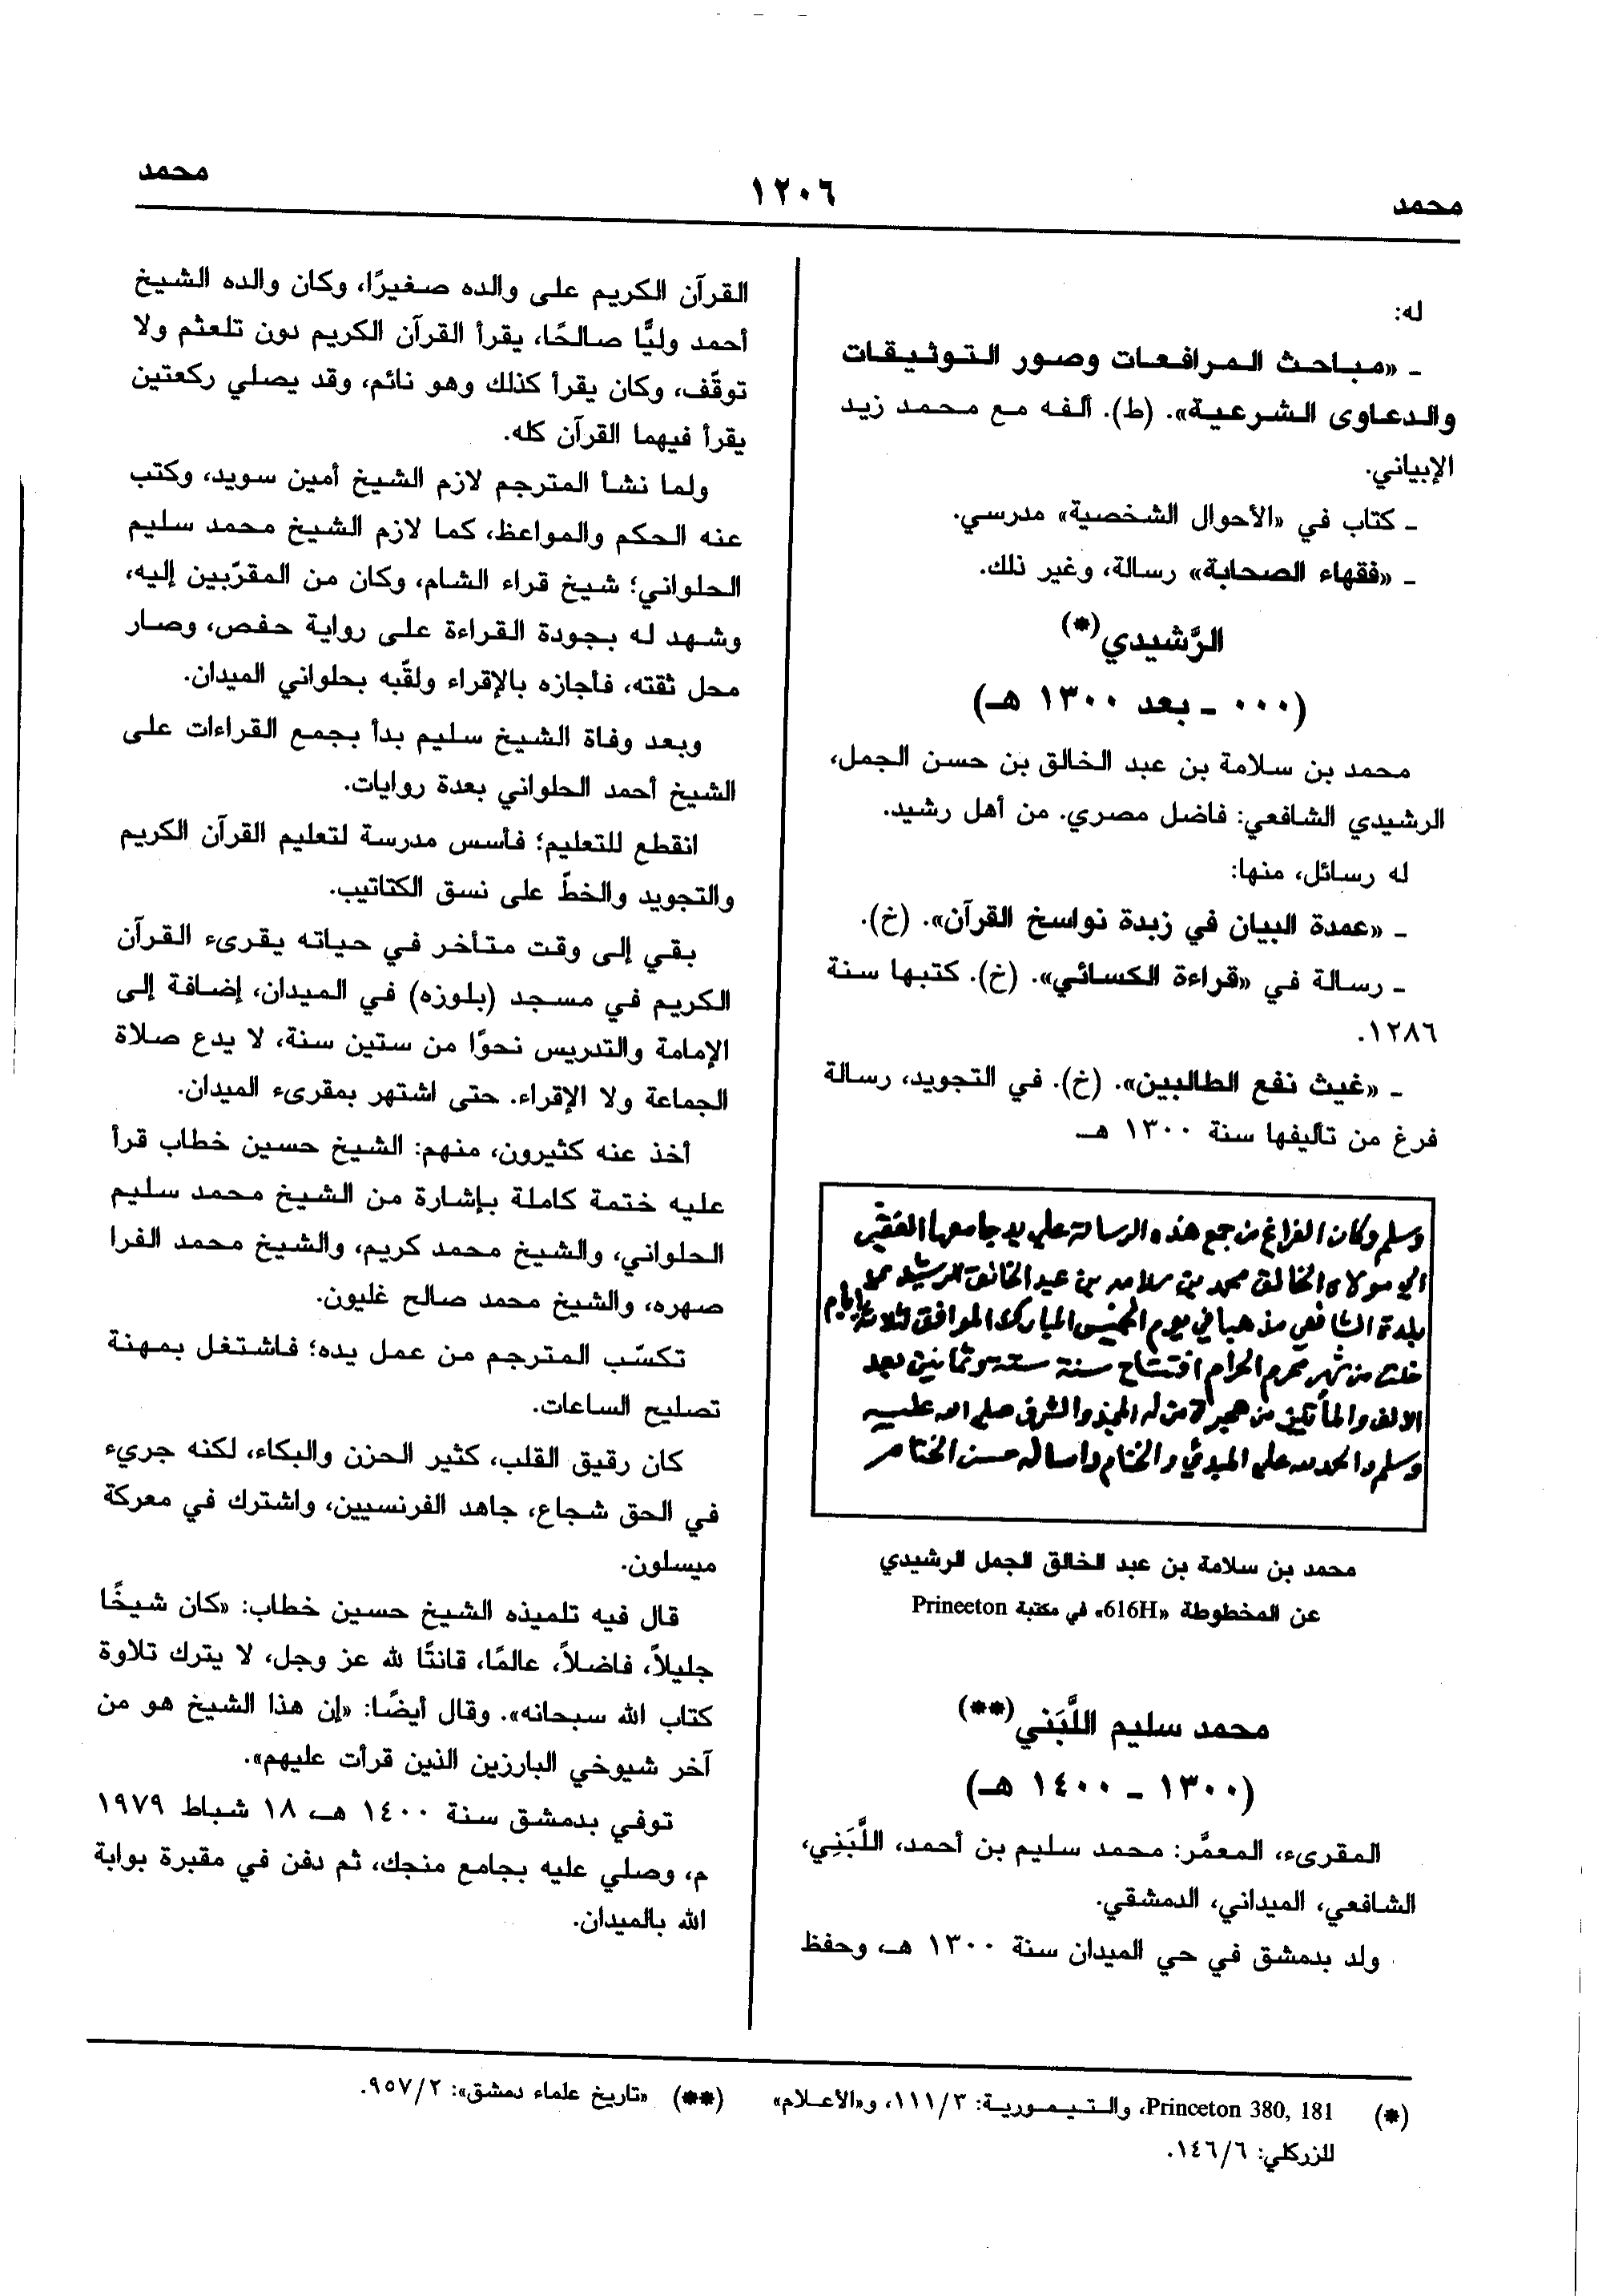 محمد
١٢٠٦
محمد
له:
ـ «مباحث المرافعات وصور التوثيقات
والدعاوى الشرعية». (ط). ألفه مع محمد زيد
الإبياني.
ـ كتاب في «الأحوال الشخصية» مدرسي.
ـ «فقهاء الصحابة» رسالة، وغير ذلك.
الرَّشيدي(*)
(٠٠٠ ـ بعد ١٣٠٠ هـ)
محمد بن سلامة بن عبد الخالق بن حسن الجمل،
الرشيدي الشافعي: فاضل مصري. من أهل رشيد.
له رسائل، منها:
ـ «عمدة البيان في زبدة نواسخ القرآن». (خ).
ـ رسالة في «قراءة الكسائي». (خ). كتبها سنة
١٢٨٦.
ـ «غيث نفع الطالبين». (خ). في التجويد، رسالة
فرغ من تأليفها سنة ١٣٠٠ هـ.
وسلم وكان الفراغ من جمع هذه الرسالة علي يد جامعها الفقير
الي مولاه الخالق محمد بن سلامه بن عبد الخالق الرشيدي
بلدة الشافعي مذهبا في يوم الخميس المبارك الموافق ثلاثة ايام
خلت من شهر محرم الحرام افتتاح سنة ستة وثمانين بعد
الالف والمأتين من هجرة من له المجد والشرف صلي الله عليه
وسلم والحمد لله علي المبدئ والختام واساله حسن الختام
محمد بن سلامة بن عبد الخالق الجمل الرشيدي
عن المخطوطة «616H» في مكتبة Prineeton
محمد سليم اللَّبَني(**)
(١٣٠٠ ـ ١٤٠٠ هـ)
المقرىء، المعمَّر: محمد سليم بن أحمد، اللَّبَنِي،
الشافعي، الميداني، الدمشقي.
ولد بدمشق في حي الميدان سنة ١٣٠٠ هـ، وحفظ
القرآن الكريم على والده صغيرًا، وكان والده الشيخ
أحمد وليًّا صالحًا، يقرأ القرآن الكريم دون تلعثم ولا
توقّف، وكان يقرأ كذلك وهو نائم، وقد يصلي ركعتين
يقرأ فيهما القرآن كله.
ولما نشأ المترجم لازم الشيخ أمين سويد، وكتب
عنه الحكم والمواعظ، كما لازم الشيخ محمد سليم
الحلواني؛ شيخ قراء الشام، وكان من المقرّبين إليه،
وشهد له بجودة القراءة على رواية حفص، وصار
محل ثقته، فأجازه بالإقراء ولقّبه بحلواني الميدان.
وبعد وفاة الشيخ سليم بدأ بجمع القراءات على
الشيخ أحمد الحلواني بعدة روايات.
انقطع للتعليم؛ فأسس مدرسة لتعليم القرآن الكريم
والتجويد والخطّ على نسق الكتاتيب.
بقي إلى وقت متأخر في حياته يقرىء القرآن
الكريم في مسجد (بلوزه) في الميدان، إضافة إلى
الإمامة والتدريس نحوًا من ستين سنة، لا يدع صلاة
الجماعة ولا الإقراء. حتى اشتهر بمقرىء الميدان.
أخذ عنه كثيرون، منهم: الشيخ حسين خطاب قرأ
عليه ختمة كاملة بإشارة من الشيخ محمد سليم
الحلواني، والشيخ محمد كريم، والشيخ محمد الفرا
صهره، والشيخ محمد صالح غليون.
تكسّب المترجم من عمل يده؛ فاشتغل بمهنة
تصليح الساعات.
كان رقيق القلب، كثير الحزن والبكاء، لكنه جريء
في الحق شجاع، جاهد الفرنسيين، واشترك في معركة
ميسلون.
قال فيه تلميذه الشيخ حسين خطاب: «كان شيخًا
جليلاً، فاضلاً، عالمًا، قانتًا لله عز وجل، لا يترك تلاوة
كتاب الله سبحانه». وقال أيضًا: «إن هذا الشيخ هو من
آخر شيوخي البارزين الذين قرأت عليهم».
توفي بدمشق سنة ١٤٠٠ هـ، ١٨ شباط ١٩٧٩
م، وصلي عليه بجامع منجك، ثم دفن في مقبرة بوابة
الله بالميدان.
(*) Princeton 380, 181، والتيمورية: ١١١/٣، و«الأعلام»
للزركلي: ١٤٦/٦.
(**) «تاريخ علماء دمشق»: ٩٥٧/٢.